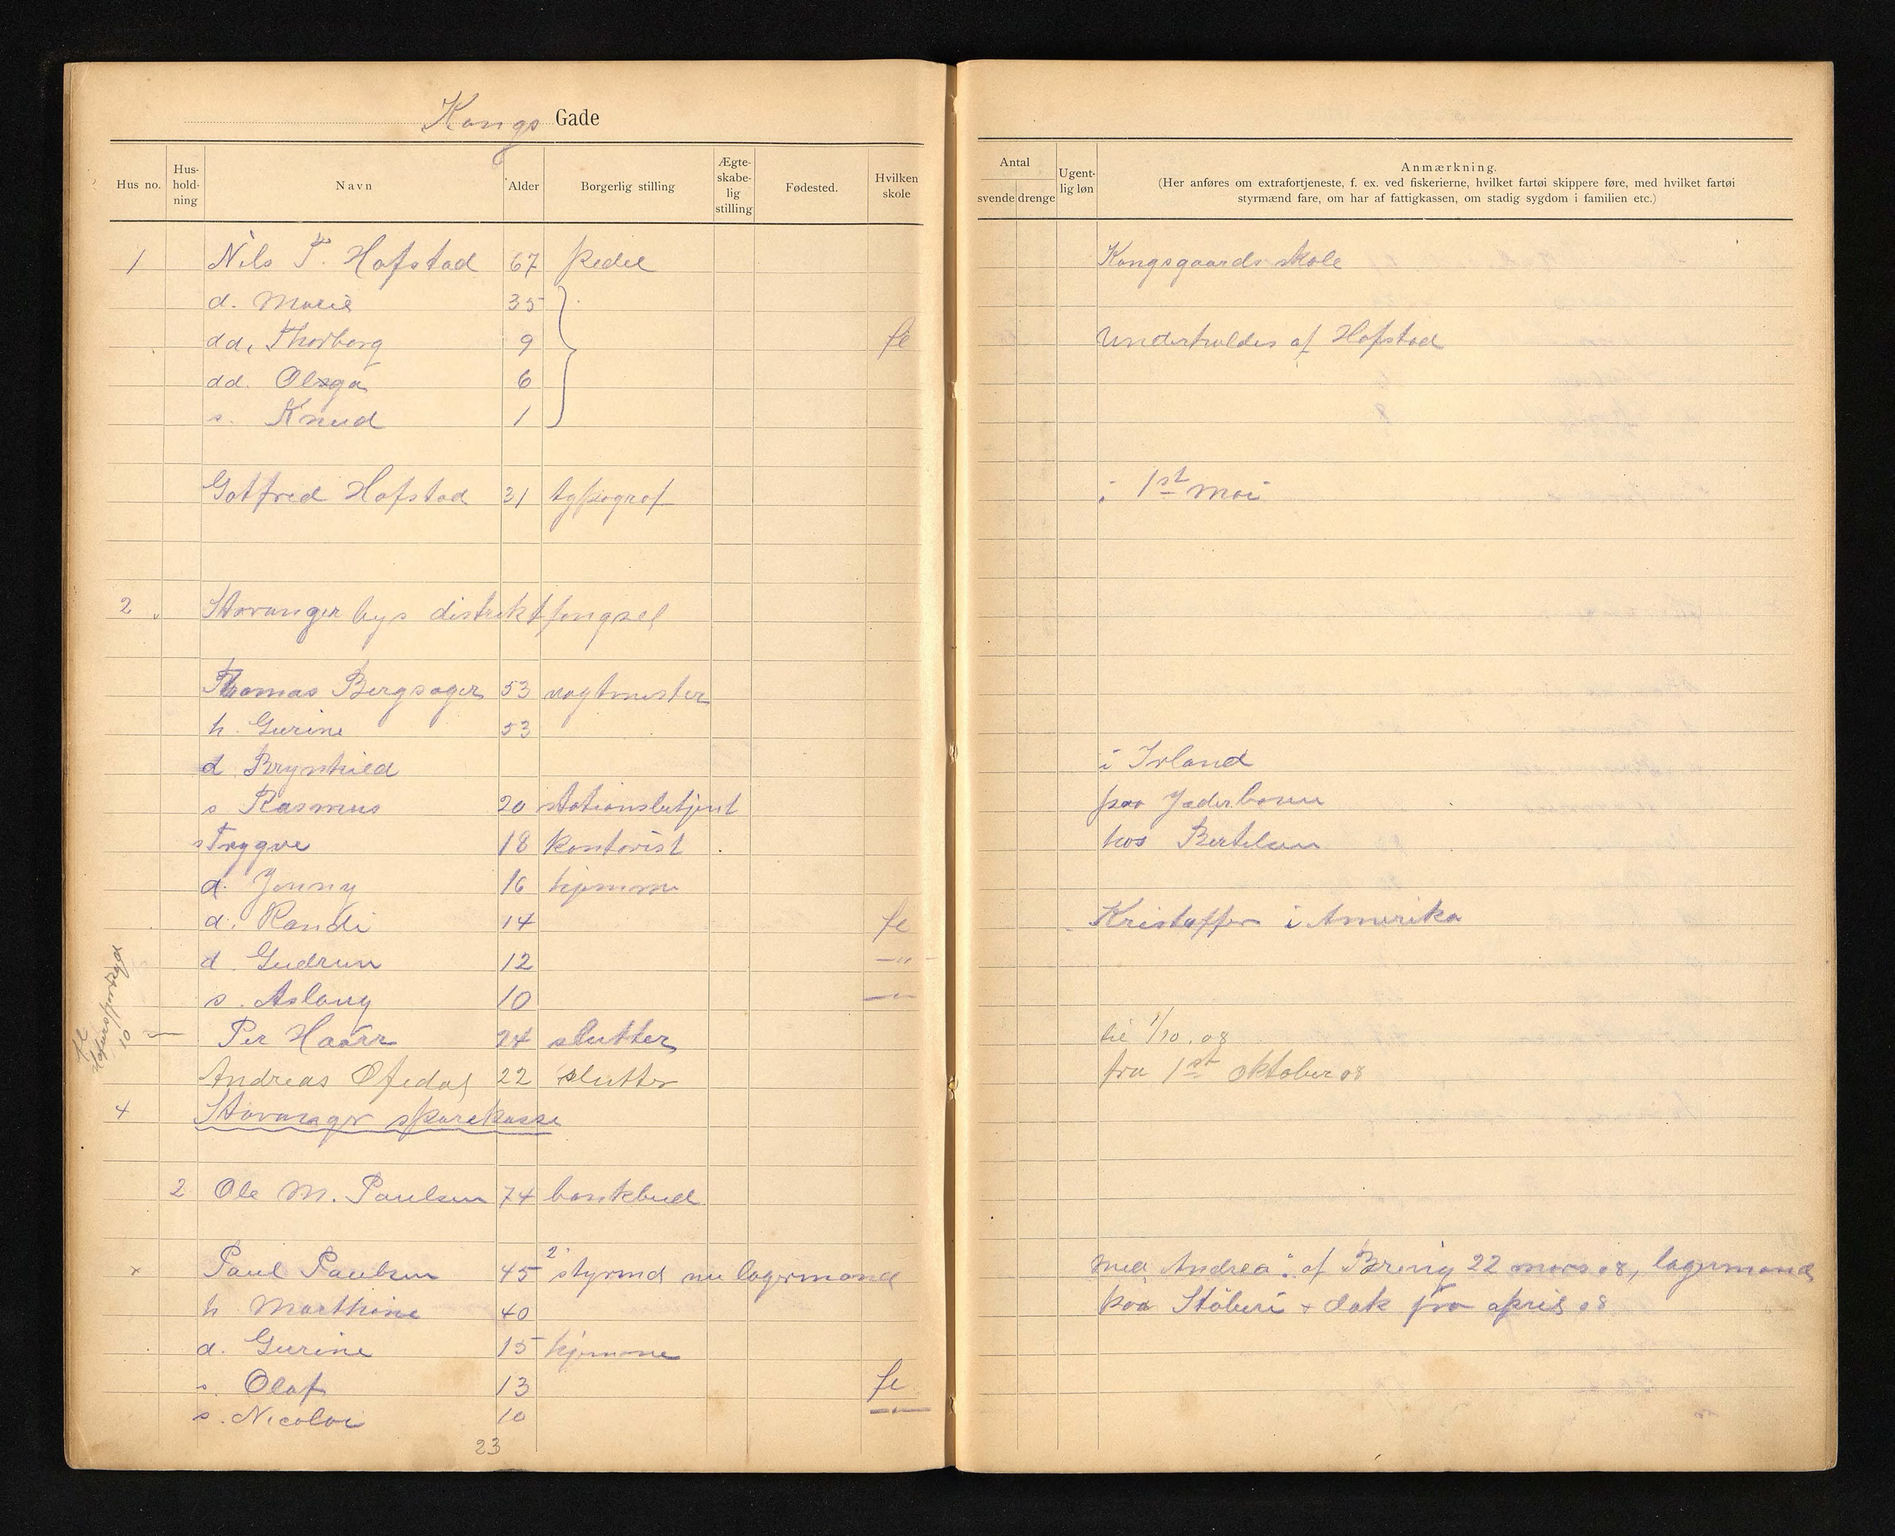 Kongs Gade
Hus no. Hus-hold-ning Navn Alder Borgerlig stilling Ægte-skabe-lig stilling Fødested. Hvilken skole
Antal svende drenge Ugent-lig løn Anmærkning.
(Her anføres om extrafortjeneste, f. ex. ved fiskerierne, hvilket fartøi skippere føre, med hvilket fartøi
styrmænd fare, om har af fattigkassen, om stadig sygdom i familien etc.)
1 Nils T. Hofstad 67 pedel Kongsgaards skole
d. Marie 35
dd. Thorborg 9 fl Underholdes af Hofstad
dd. Olga 6
s. Knud 1
Gotfred Hofstad 31 typograf i 1st mai
2 Stavanger bys distriktfengsel
Thomas Bergsager 53 vagtmester
h. Gurine 53
d Brynhild i Irland
s Rasmus 20 stationsbetjent paa Jæderbanen
s Trygve 18 kontorist hos Bertelsen
d. Jenny 16 hjemme
d. Randi 14 fl Kristoffer i Amerika
d. Gudrun 12 -"-
s. Aslaug 10 -"-
Per Haarr 24 slutter til 1/10.08
Andreas Øfedal 22 slutter fra 1st oktober 08
4 Stavanger sparekasse
2 Ole M. Paulsen 74 bankbud
x Paul Paulsen 45 2' styrmd nu lagermand med "Andrea" af Brevig 22 mars 08, lagermand
h. Marthine 40 paa Støberi + dok fra april 08
d. Gurine 15 hjemme
s. Olaf 13 fl
s. Nicolai 10 -"-
23